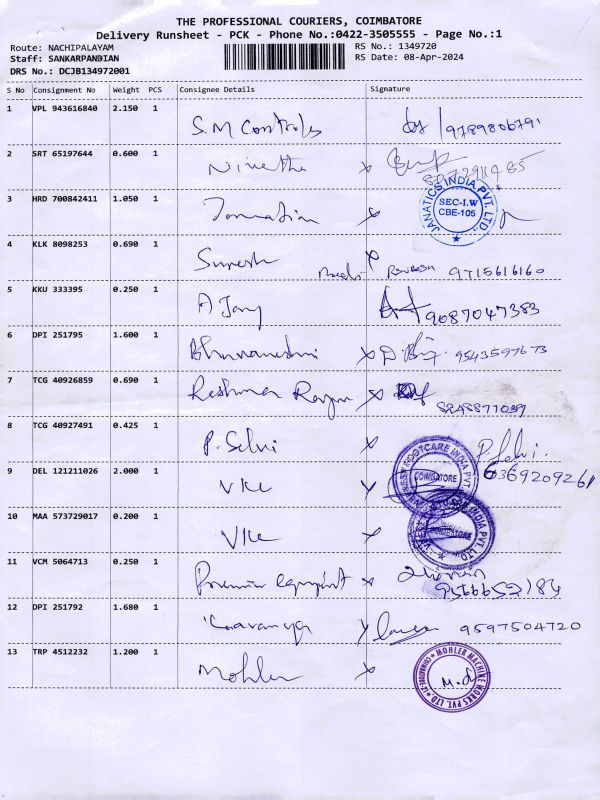 THE PROFESSIONAL COURIERS, COIMBATORE
Delivery Runsheet - PCK - Phone No.:0422-3505555 - Page No.:1
Route: NACHIPALAYAM
RS No.: 1349720
Staff: SANKARPANBIAN
RS Date: 08-Apr-2024
DRS No.: DCJB134972001
S No Consignment No Weight PCS Consignee Details Signature
1 VPL 943616840 2.150 1 S.M Controls 9789806791
2 SRT 65197644 0.600 1 Nivetha
3 HRD 700842411 1.050 1 JANATICS INDIA PVT. LTD. SEC-I.W CBE-105
4 KLK 8098253 0.690 1 Suresh 9715616160
5 KKU 333395 0.250 1 A Jany 9087047383
6 DPI 251795 1.600 1 Bhuvaneshri 9543597673
7 TCG 40926859 0.690 1 Reshma
8 TCG 40927491 0.425 1 P. Selvi P. Selvi.
6369209261
9 DEL 121211026 2.000 1 VKC FOOTCARE INDIA PVT. COIMBATORE
10 MAA 573729017 0.200 1 VKC INDIA PVT. LTD COIMBATORE
11 VCM 5064713 0.250 1 Premier
12 DPI 251792 1.680 1 9597504720
13 TRP 4512232 1.200 1 Mohler MOHLER MACHINE WORKS PVT. LTD.